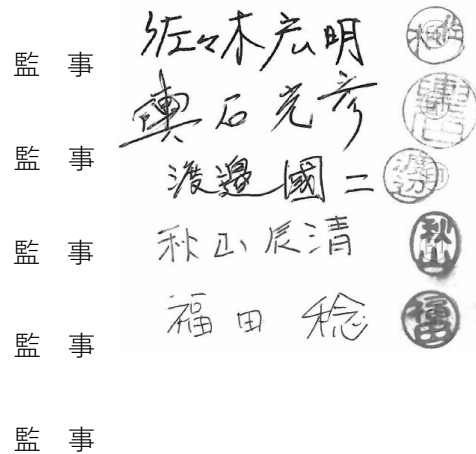 監 事 佐々木宏明
監 事 輿石光彦
監 事 渡邉國二
監 事 秋山辰清
監 事 福田 稔